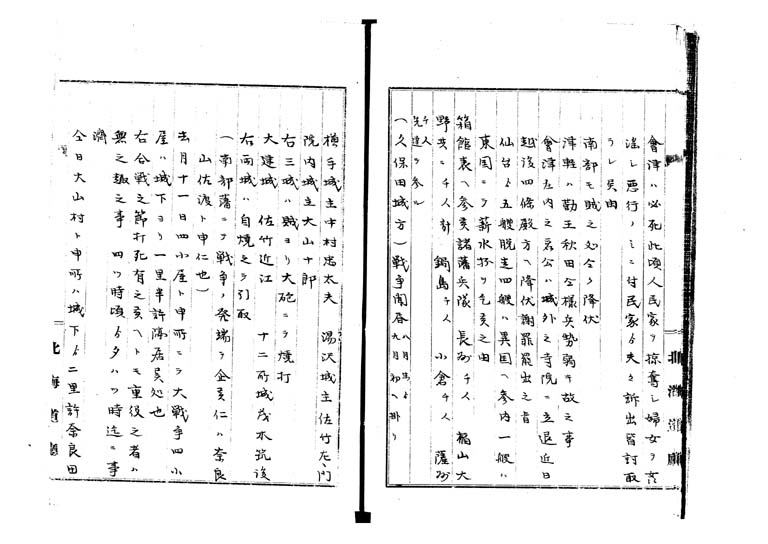 會津ハ必死此頃人民家ヲ掠奪シ婦女ヲ
淫シ悪行ノミニ付民家ゟ夫々訴出皆討取
ラレ候由
南部モ賊之処今ヲ降伏
津軽ハ勤王秋田仝様兵勢弱キ故之事
會津在内之君公ハ城外之寺院ニ立退近日
越後四條殿方ヘ降伏謝罪罷出之旨
仙台ゟ五艘脱走四艘ハ異国ヘ参内一艘ハ
東国ニ而薪水抔ヲ乞候之由
箱館表ヘ参候諸藩兵隊 長州千人 福山大
野共ニ千人計 鍋島千人 小倉千人 薩州
千人
先達而参ル
(久保田城方)戦争開 八月ゟ九月初ヘ掛リ
横手城主中村忠太夫 湯沢城主佐竹左門
院内城主大山十郎
右三城ハ賊ヨリ大砲ニテ焼打
大建城 佐竹近江 十二所城茂木筑後
右両城ハ自焼之テ引取
(南部藩ニテ戦争ノ発端ヲ企候仁ハ奈良
山佐渡ト申仁也)
去月十一日四小屋ト申所ニテ大戦争四小
屋ハ城下ヨリ一里半許隔居候処也
右合戦之節打死有之候ヘトモ重役之者ハ
無之趣之事 四ツ時頃ゟ夕八ツ時迄ニ事
濟
仝日大山村ト申所ハ城下ゟ二里許奈良田
北海道廳
北海道廳